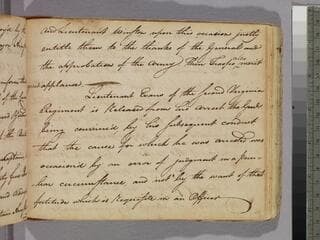 and Lieutenant upon this occasion justly
entitle them to the thanks of the General and
the approbation of the army. Their merit
applause
Lieutenant Evans of the second Virginia
Regiment is Released from his arrest the Genl
being convinced by his subsequent conduct
that the cause for which he was arrested was
occasion'd by an error of judgment in a
circumstance and not by the want of that
fortitude which is Requisite in an Officer